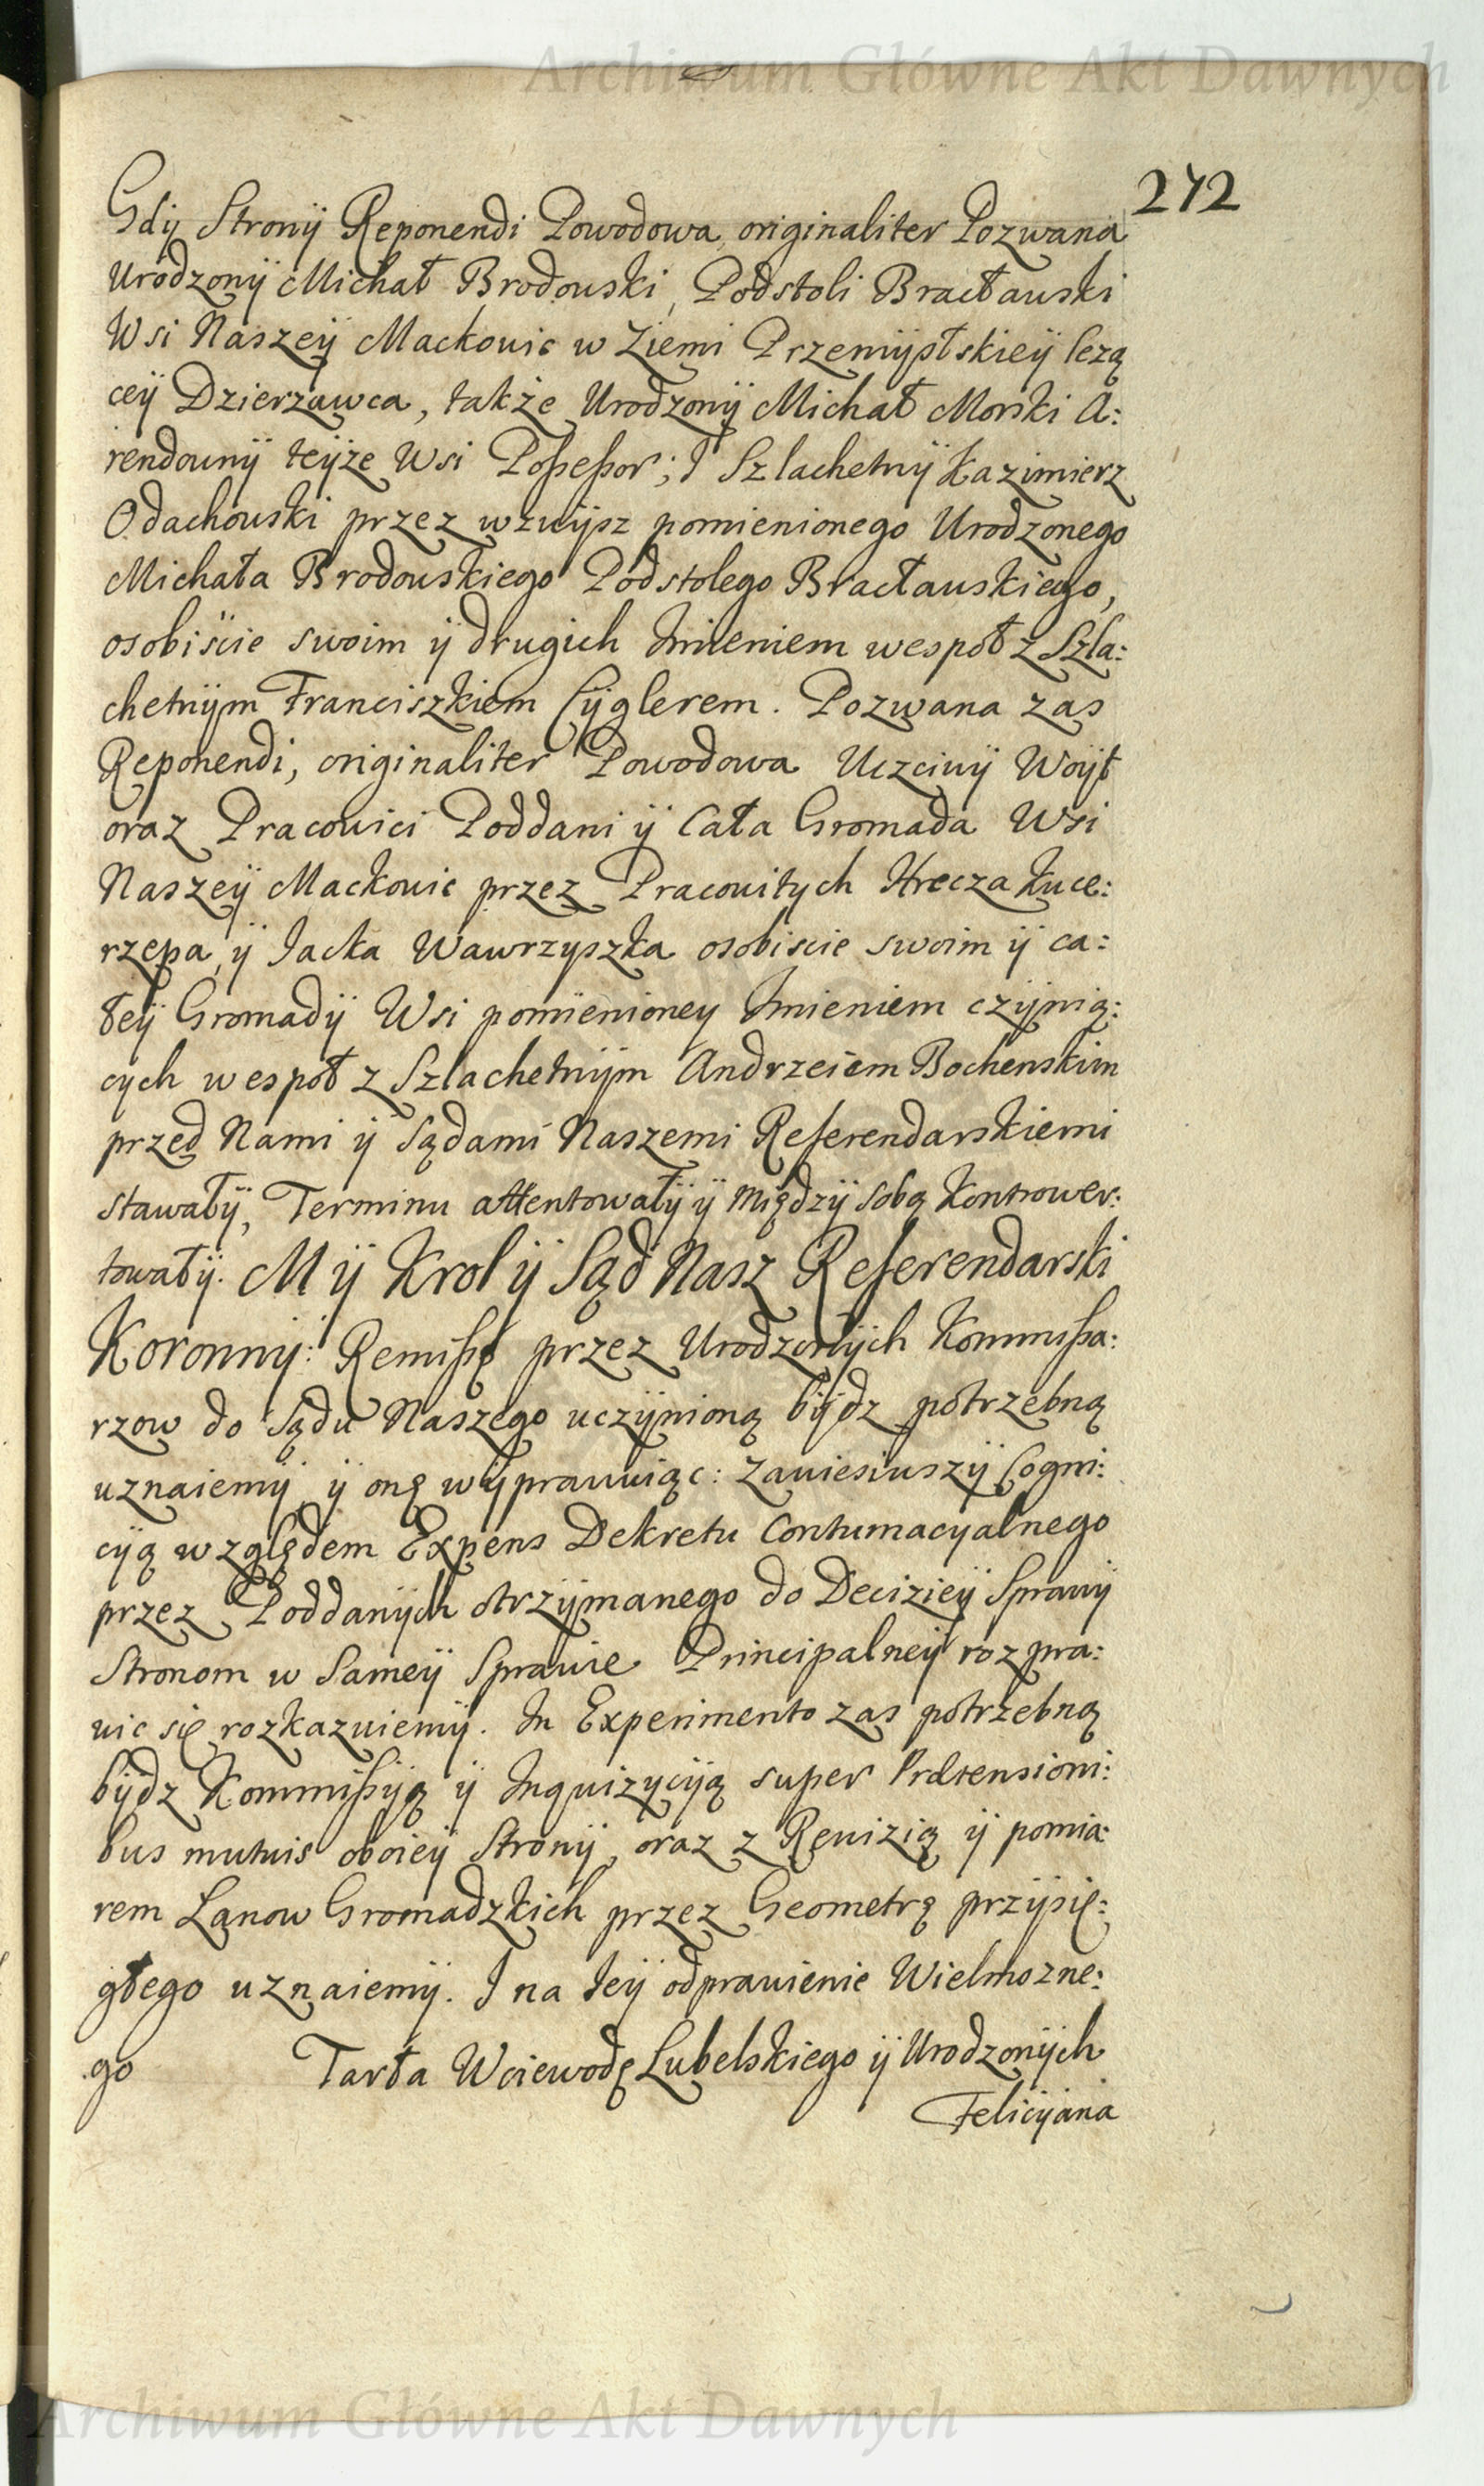 Archiwum Główne Akt Dawnych
272
Gdÿ Stronÿ Reponendi Powodowa originaliter Pozwana
Urodzonÿ Michał Brodowski, Podstoli Bracławski
Wsi Naszeÿ Mackowic w Ziemi Przemÿslskieÿ lezą
ceÿ Dzierzawca, także Urodzonÿ Michał Morski A:
rendownÿ teÿże Wsi Poßeßor; J Szlachetnÿ Kazimierz
Odachowski przez wzwÿsz pomienionego Urodzonego
Michała Brodowskiego Podstolego Bracławskiego,
osobiście swoim ÿ drugich Jmieniem wespoł z Szla:
chetnÿm Franciszkiem Cÿglerem. Pozwana zas
Reponendi, originaliter Powodowa Uczciwÿ Woÿt
oraz Pracowici Poddani ÿ Cała Gromada Wsi
Naszeÿ Mackowic przez Pracowitych Hrecza Kuce:
rzepa, ÿ Jacka Wawrzyszka osobiscie swoim ÿ ca:
łeÿ Gromadÿ Wsi pomienioney Jmieniem czÿnią:
cych wespoł z Szlachetnÿm Andrzeiem Bochenskim
przed Nami ÿ Sądami Naszemi Referendarskiemi
stawałÿ, Terminu attentowałÿ ÿ międzÿ sobą Kontrower:
towałÿ. Mÿ Krol ÿ Sąd Nasz Referendarski
Koronnÿ: Remißę przez Urodzonÿch Kommißa:
rzow do Sądu Naszego uczÿnioną bÿdz potrzebną
uznaiemÿ ÿ onę wÿprawuiąc: Zawiesiwszÿ Cogni:
cÿą względem Expens Dekretu Contumacyalnego
przez Poddanÿch otrzÿmanego do Decizieÿ Sprawÿ
Stronom w Sameÿ Sprawie Principalneÿ rozpra:
wic się rozkazuiemÿ. In Experimento zas potrzebną
bÿdz Kommißÿą ÿ Inquizycÿą super Prætensioni:
bus mutuis oboieÿ Stronÿ, oraz z Rewizią ÿ pomia:
rem Łanow Gromadzkich przez Geometrę przÿsię:
głego uznaiemÿ. J na Jeÿ odprawienie Wielmozne:
go Tarła Woiewodę Lubelskiego ÿ Urodzonÿch
Felicÿana
Archiwum Główne Akt Dawnych